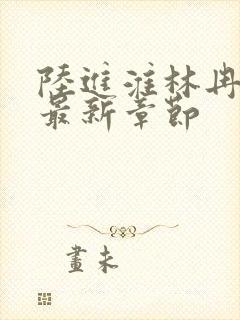 陸進淮林冉
最新章節
畫未